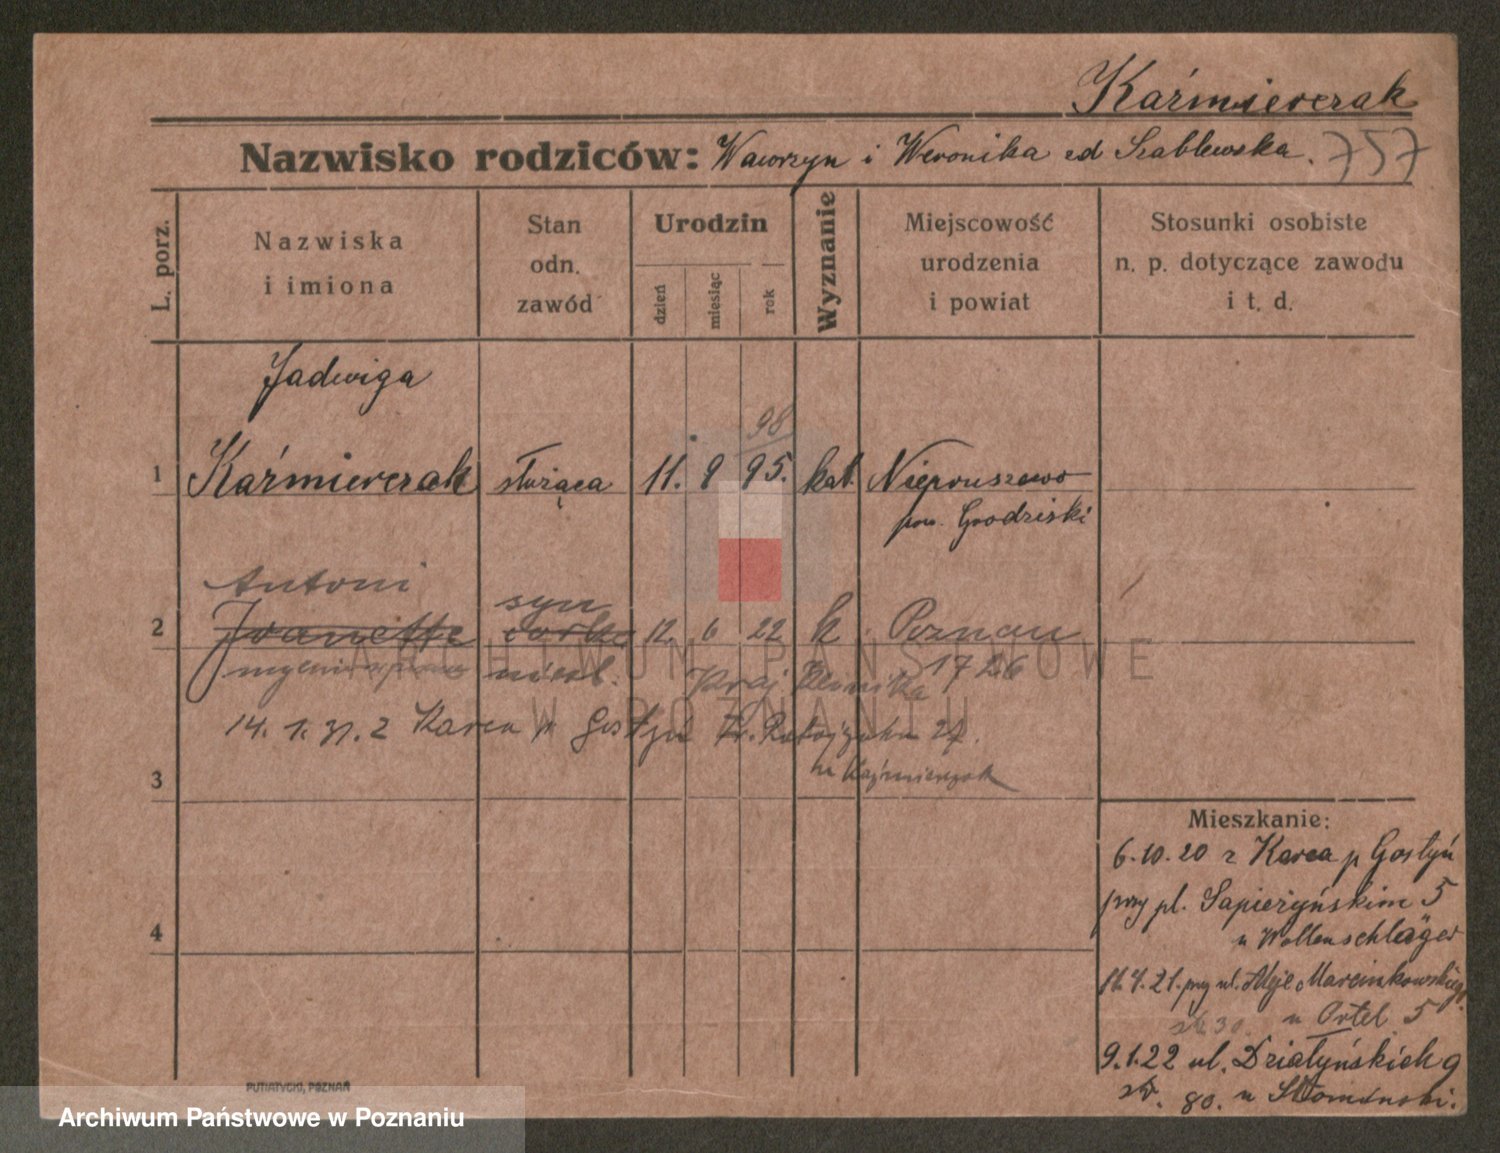 Kaźmierczak
Nazwisko rodziców: Wawrzyn i Weronika zd Szablewska. 757
L. porz.
Nazwiska
i imiona
Stan
odn.
zawód
Urodzin
dzień
miesiąc
rok
Wyznanie
Miejscowość
urodzenia
i powiat
Stosunki osobiste
n. p. dotyczące zawodu
i t. d.
Jadwiga
98
1 Kaźmierczak służąca 11. 9 95. kat. Niepruszewo
pow. Grodziski
Antoni
syn
2 córka 12. 6 22 k Poznan
nieśl. Kraj. Klinika 1726
14. 1. 31. z Karca p Gostyń 27.
u Kaźmierczak
3
4
Mieszkanie:
6.10.20 z Karca p Gostyń
przy pl. Sapieżyńskim 5
u Wollenschläger
przy ul. Aleje Marcinkowskiego
u Ortel 5
9.1.22 ul. Działyńskich 9
80. u Słomiński.
PUTIATYCKI, POZNAŃ
ARCHIWUM PAŃSTWOWE
W POZNANIU
Archiwum Państwowe w Poznaniu